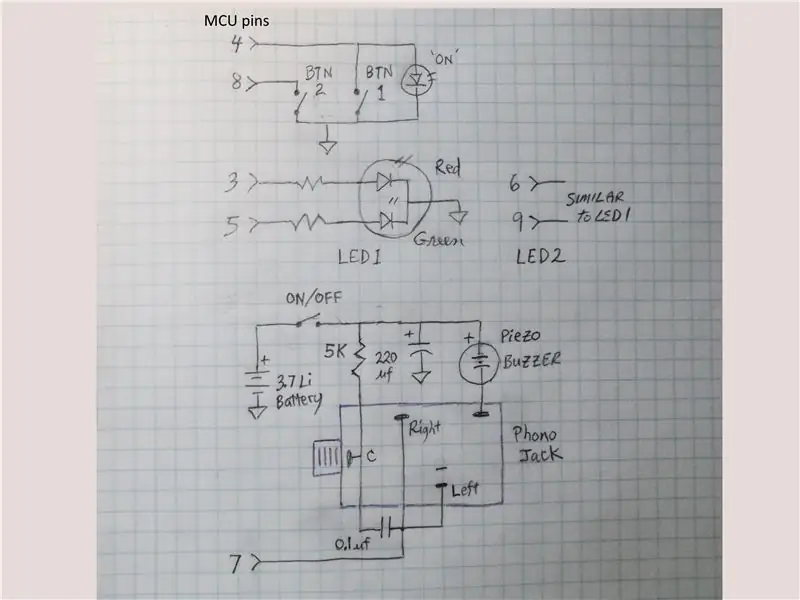 MCU pins
4
'ON'
8
BTN
2
BTN
1
3
Red
6
SIMILAR
to LED1
5
Green
9
LED1
LED2
ON/OFF
+
5K
220
µf
+
+
Piezo
BUZZER
3.7 Li
Battery
Right
Phono
Jack
C
Left
0.1uf
7